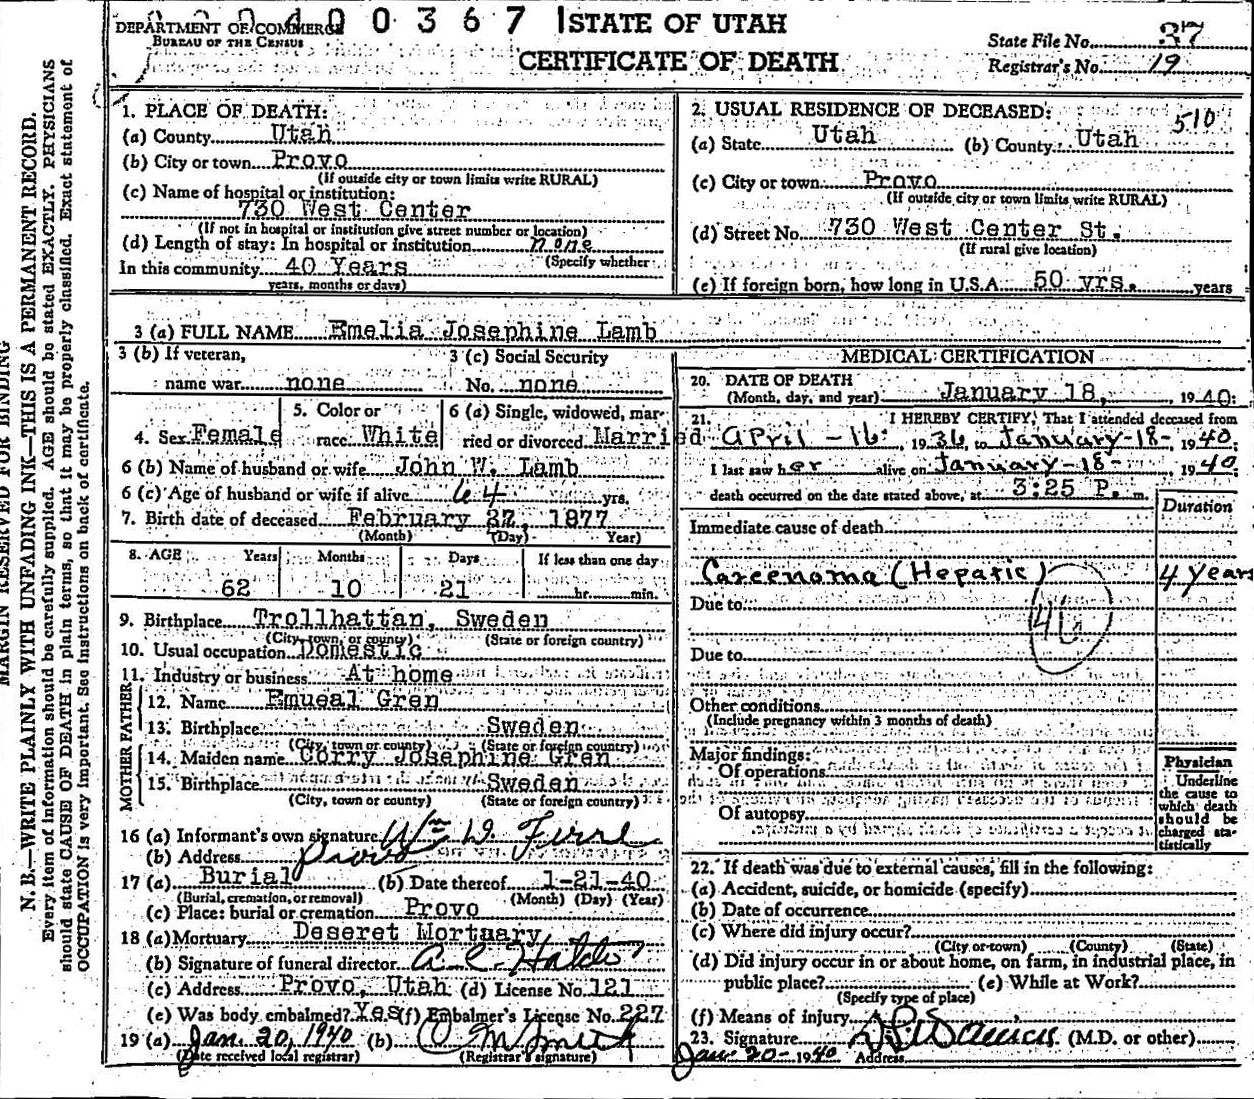 DEPARTMENT OF COMMERCE
BUREAU OF THE CENSUS
400367
STATE OF UTAH
CERTIFICATE OF DEATH
State File No. 37
Registrar's No. 19
MARGIN RESERVED FOR BINDING
N. B.—WRITE PLAINLY WITH UNFADING INK—THIS IS A PERMANENT RECORD.
Every item of information should be carefully supplied. AGE should be stated EXACTLY. PHYSICIANS
should state CAUSE OF DEATH in plain terms, so that it may be properly classified. Exact statement of
OCCUPATION is very important. See instructions on back of certificate.
1. PLACE OF DEATH:
(a) County Utah
(b) City or town Provo
(If outside city or town limits write RURAL)
(c) Name of hospital or institution:
730 West Center
(If not in hospital or institution give street number or location)
(d) Length of stay: In hospital or institution none
(Specify whether
In this community 40 Years
years, months or days)
2. USUAL RESIDENCE OF DECEASED:
510
(a) State Utah (b) County Utah
(c) City or town Provo
(If outside city or town limits write RURAL)
(d) Street No. 730 West Center St.
(If rural give location)
(e) If foreign born, how long in U.S.A. 50 yrs. years
3 (a) FULL NAME Emelia Josephine Lamb
3 (b) If veteran,
name war none
3 (c) Social Security
No. none
4. Sex Female
5. Color or
race White
6 (a) Single, widowed, mar-
ried or divorced Married
6 (b) Name of husband or wife John W. Lamb
6 (c) Age of husband or wife if alive 64 yrs.
7. Birth date of deceased February 27, 1877
(Month) (Day) Year)
8. AGE Years Months Days If less than one day
62 10 21 hr. min.
9. Birthplace Trollhattan, Sweden
(City, town, or county) (State or foreign country)
10. Usual occupation Domestic
11. Industry or business At home
FATHER
12. Name Emueal Gren
13. Birthplace Sweden
(City, town or county) (State or foreign country)
MOTHER
14. Maiden name Corry Josephine Gren
15. Birthplace Sweden
(City, town or county) (State or foreign country)
16 (a) Informant's own signature Wm D.
(b) Address Provo
17 (a) Burial (b) Date thereof 1-21-40
(Burial, cremation, or removal) (Month) (Day) (Year)
(c) Place: burial or cremation Provo
18 (a) Mortuary Deseret Mortuary
(b) Signature of funeral director A. C. Hatch
(c) Address Provo, Utah (d) License No. 121
(e) Was body embalmed? Yes (f) Embalmer's License No. 227
19 (a) Jan. 20, 1940 (b) O M Smith
(Date received local registrar) (Registrar's signature)
MEDICAL CERTIFICATION
20. DATE OF DEATH
(Month, day, and year) January 18, 1940
21. I HEREBY CERTIFY, That I attended deceased from
April -16- 1936 to January-18- 1940
I last saw her alive on January-18- 1940
death occurred on the date stated above, at 3:25 P. m.
Duration
Immediate cause of death
Carcenoma (Hepatic) 4 years
Due to
46
Due to
Other conditions
(Include pregnancy within 3 months of death)
Major findings:
Of operations
Of autopsy
Physician
Underline
the cause to
which death
should be
charged sta-
tistically
22. If death was due to external causes, fill in the following:
(a) Accident, suicide, or homicide (specify)
(b) Date of occurrence
(c) Where did injury occur?
(City or town) (County) (State)
(d) Did injury occur in or about home, on farm, in industrial place, in
public place? (e) While at Work?
(Specify type of place)
(f) Means of injury
23. Signature (M.D. or other)
Jan. 20- 1940 Address